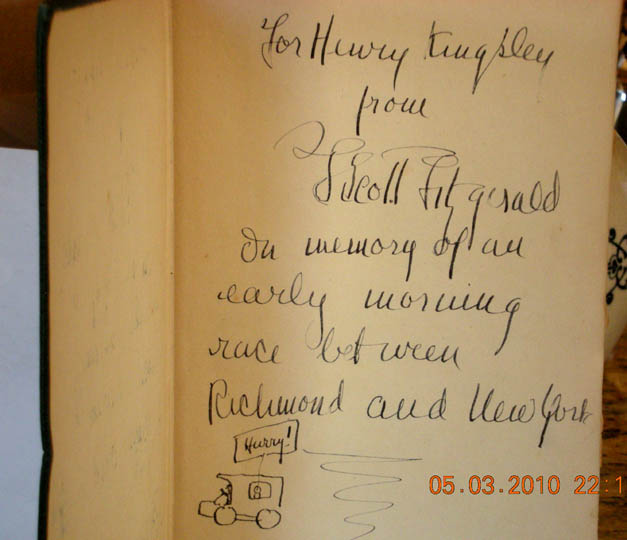 For Henry Kingsley
from
F Scott Fitzgerald
In memory of an
early morning
race between
Richmond and New York
Hurry!
05.03.2010 22:1